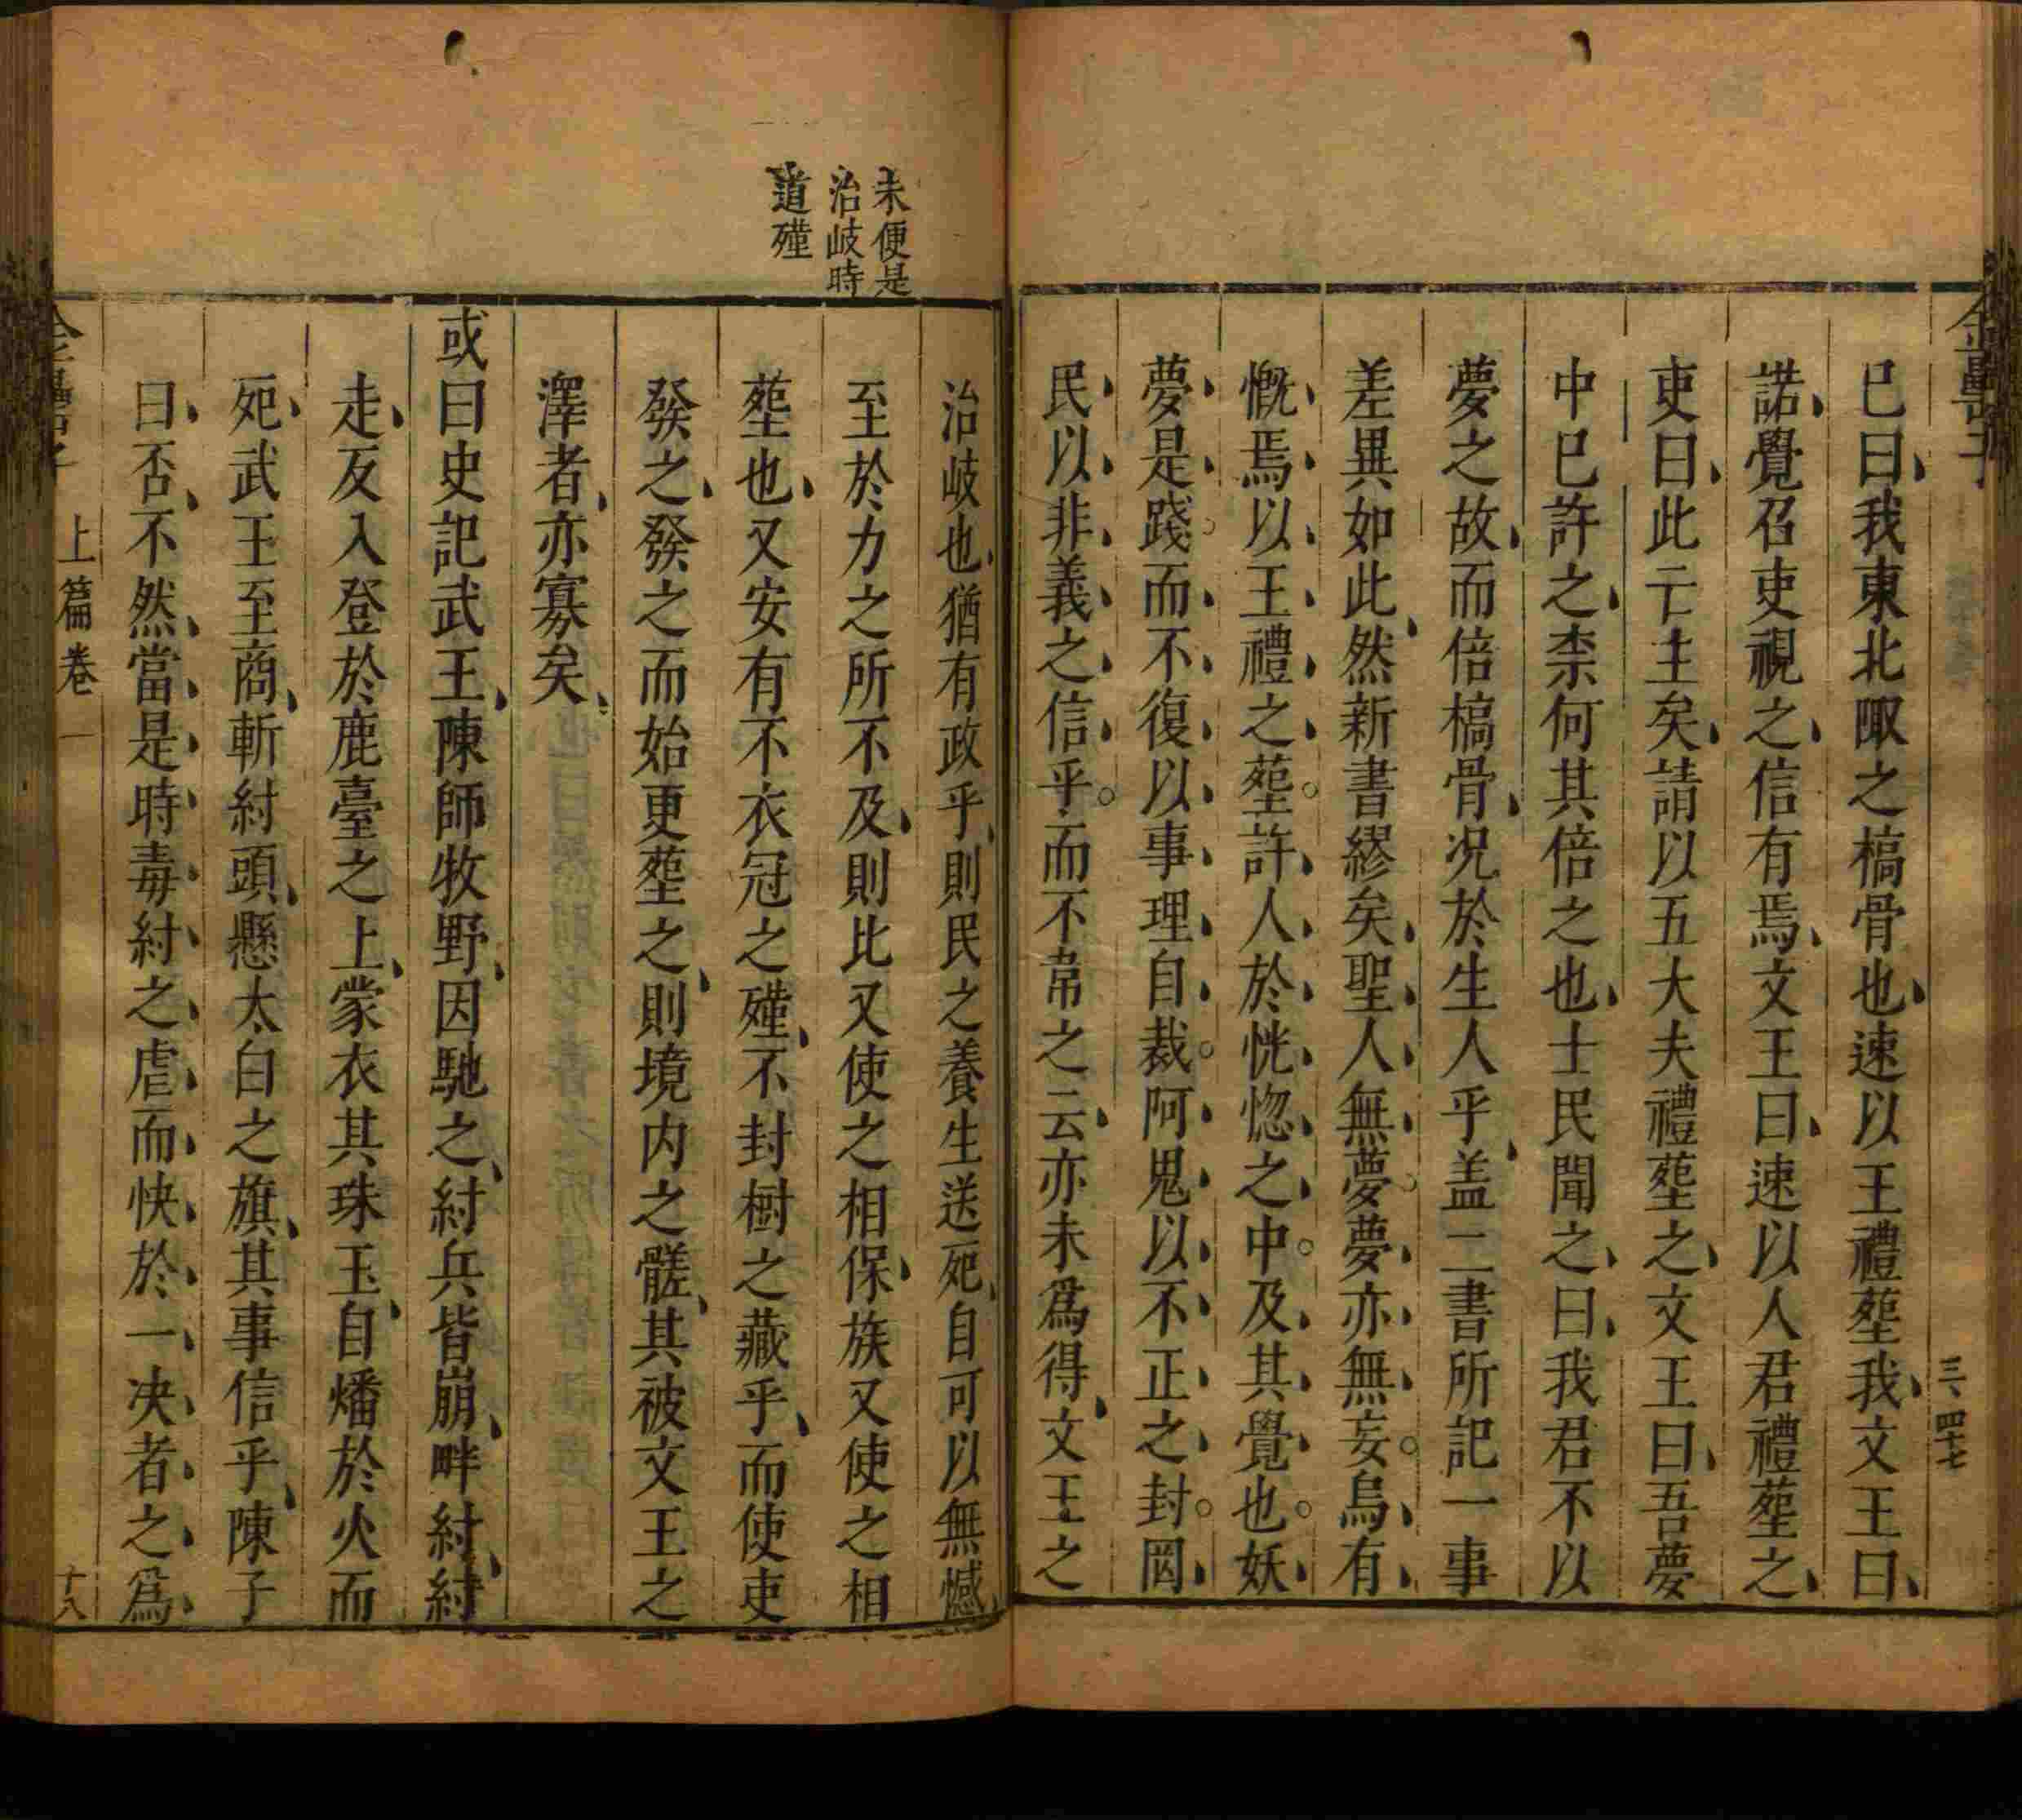 金罍子
三、四十七
已曰我東北陬之槁骨也速以王禮塟我文王曰
諾覺召吏視之信有焉文王曰速以人君禮塟之
吏曰此亡主矣請以五大夫禮塟之文王曰吾夢
中已許之柰何其倍之也士民聞之曰我君不以
夢之故而倍槁骨况於生人乎盖二書所記一事
差異如此然新書繆矣聖人無夢夢亦無妄烏有
慨焉以王禮之塟許人於恍惚之中及其覺也妖
夢是踐而不復以事理自裁阿鬼以不正之封罔
民以非義之信乎而不韋之云亦未爲得文王之
未便是
治岐時
道殣
治岐也猶有政乎則民之養生送死自可以無憾
至於力之所不及則比又使之相保族又使之相
塟也又安有不衣冠之殣不封樹之藏乎而使吏
發之發之而始更塟之則境内之髊其被文王之
澤者亦寡矣
或曰史記武王陳師牧野因馳之紂兵皆崩畔紂紂
走反入登於鹿臺之上蒙衣其珠玉自燔於火而
死武王至商斬紂頭懸太白之旗其事信乎陳子
曰否不然當是時毒紂之虐而快於一决者之爲
金罍子
上篇卷一
十八